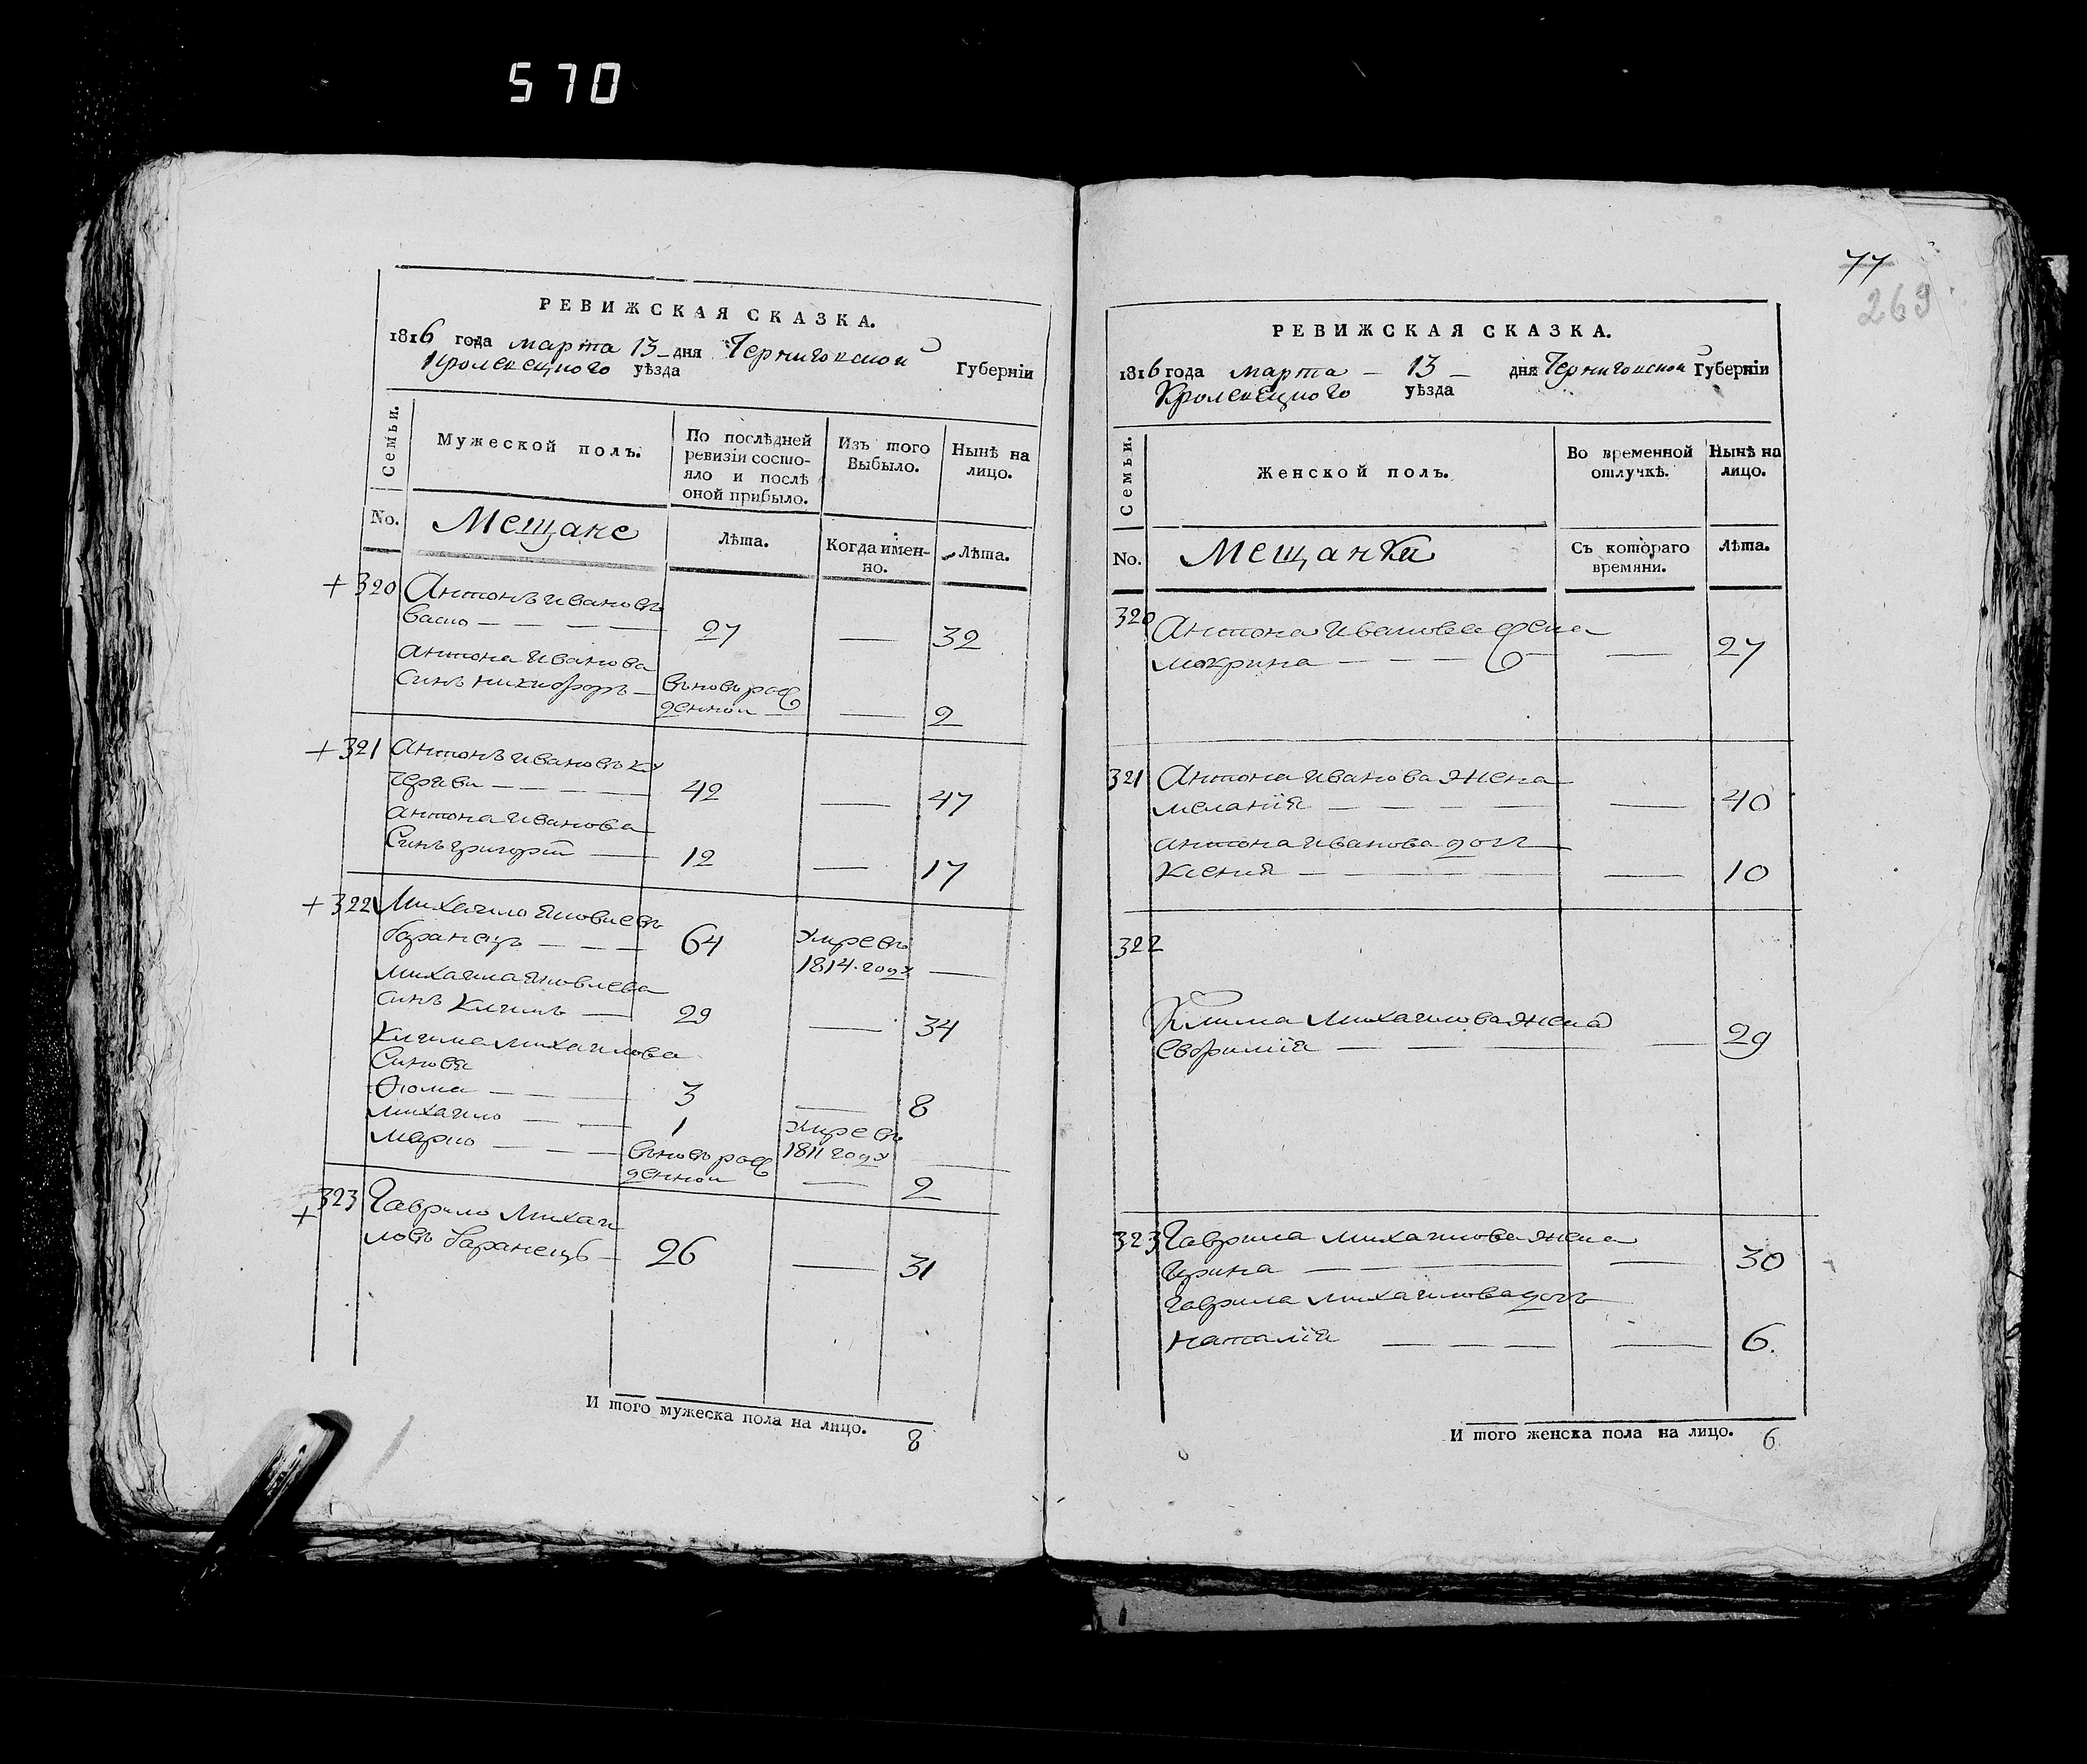 570
РЕВИЖСКАЯ СКАЗКА.
1816 года марта 13 дня Черниговской Губерніи
Кролевецкого уѣзда
Семьи.
Мужеской полъ.
По послѣдней ревизіи состояло и послѣ оной прибыло.
Изъ того Выбыло.
Нынѣ на лицо.
No.
Мещане
Лѣта.
Когда именно.
Лѣта.
+ 320 Антонъ Ивановъ
Васко — 27 — 32
Антона Иванова
Синъ Никифоръ — вновь рож
денной — 2
+ 321 Антонъ Ивановъ Ку
черяви — 42 — 47
Антона Иванова
Синъ Григорій — 12 — 17
+ 322 Михайло Яковлевъ
баранецъ — 64 умре въ
1814 году —
Михаила Яковлева
синъ Климъ — 29 — 34
Клима Михайлова
Синовя
Фома — 3 — 8
Михайло — 1 умре въ
1811 году —
Марко — вновь рож
денной — 2
+ 323 Гаврило Михай
ловъ баранецъ — 26 — 31
И того мужеска пола на лицо. 8
77
269
РЕВИЖСКАЯ СКАЗКА.
1816 года марта — 13 — дня Черниговской Губерніи
Кролевецкого уѣзда
Семьи.
Женской полъ.
Во временной отлучкѣ.
Нынѣ на лицо.
No.
Мещанки
Съ котораго времяни.
Лѣта.
320 Антона Иванова жена
Мокрина — — 27
321 Антона Иванова жена
Меланія — — 40
Антона Иванова доч
Ксения — — 10
322
Клима Михайлова жена
Евфимія — — 29
323 Гаврила Михайлова жена
Ирина — — 30
Гаврила Михайлова дочь
Наталія — — 6.
И того женска пола на лицо. 6